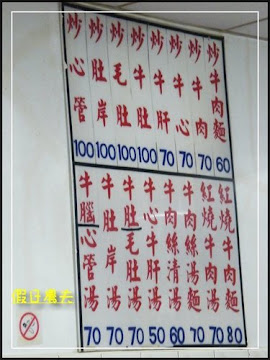 炒牛肉麵 60
炒牛肉 70
炒牛心 70
炒牛肝 70
炒牛肚 100
炒毛肚 100
炒肚岸 100
炒心管 100
紅燒牛肉麵 80
紅燒牛肉湯 70
牛肉絲湯麵 70
牛肉絲清湯 60
牛心肝湯 50
牛肚毛肚湯 70
牛肚岸湯 70
牛腦心管湯 70